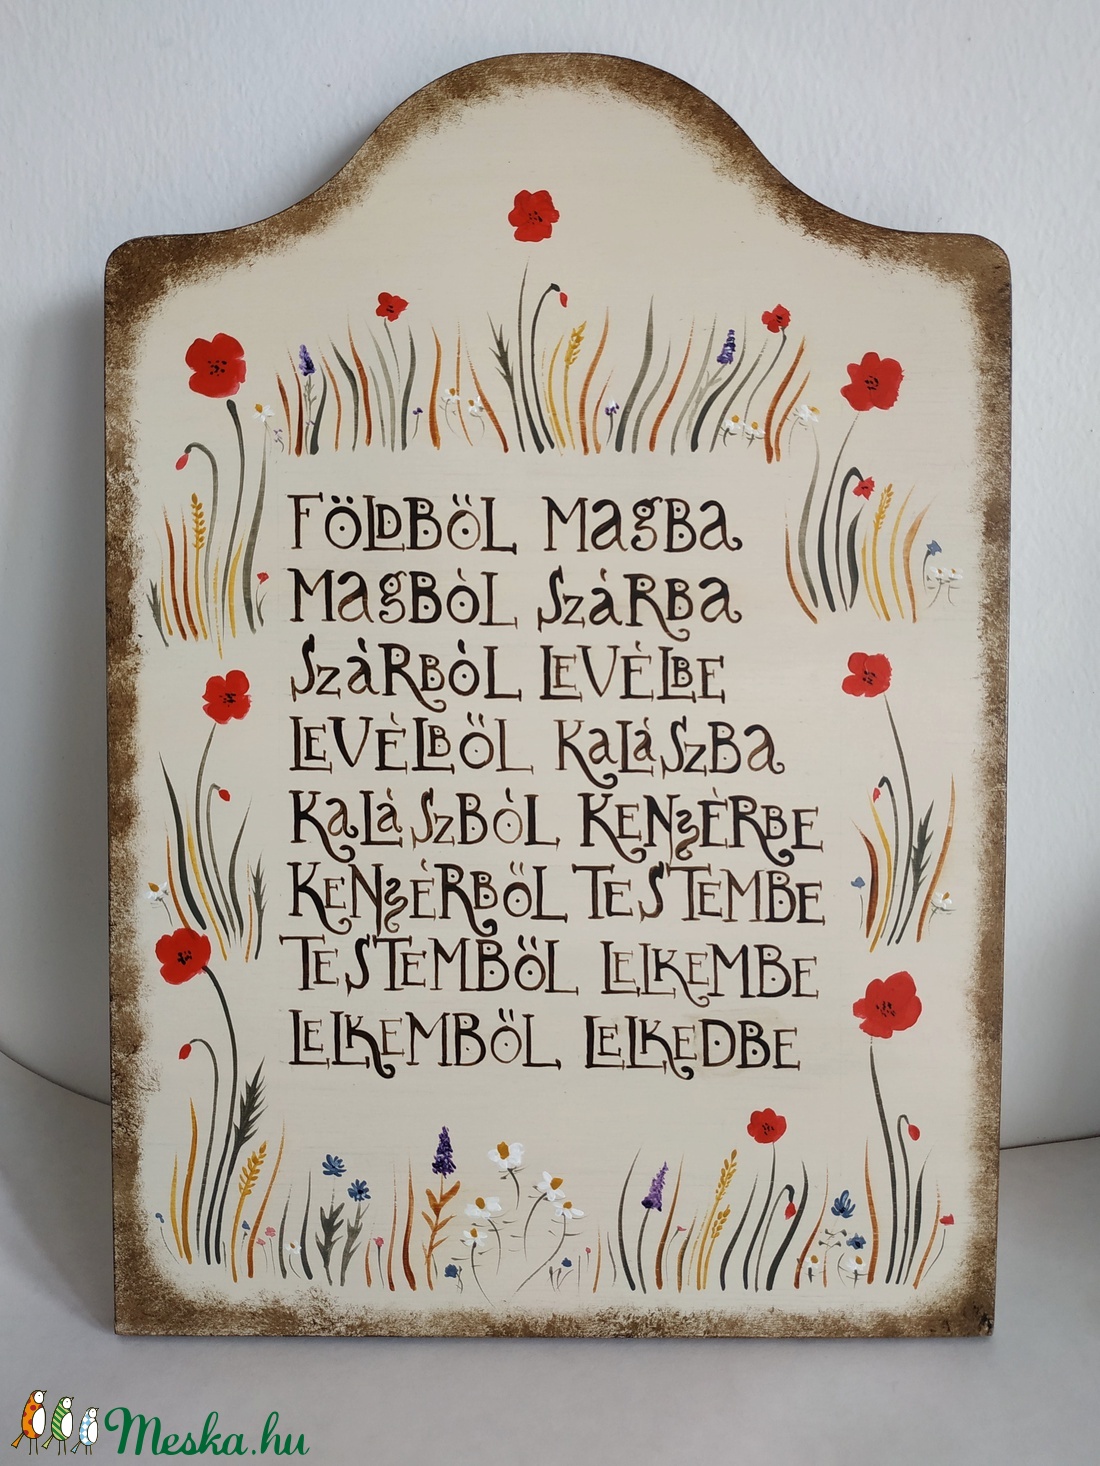 FÖLDBŐL MagBa
MagBÓL SzáRBa
SzáRBÓL LEVÉLBE
LEVÉLBŐL KaLáSzBa
KaLáSzBÓL KENyÉRBE
KENyÉRBŐL TESTEMBE
TESTEMBŐL LELKEMBE
LELKEMBŐL LELKEDBE
Meska.hu